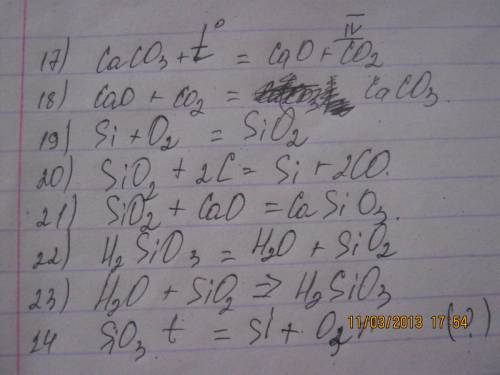 17) CaCO₃ + t° = CaO + CO₂ IV
18) CaO + CO₂ = CaCO₃.
19) Si + O₂ = SiO₂
20) SiO₂ + 2C = Si + 2CO.
21) SiO₂ + CaO = CaSiO₃.
22) H₂SiO₃ = H₂O + SiO₂
23) H₂O + SiO₂ => H₂SiO₃
24 SiO₃ t = Si + O₂ (?)
11/03/2013 17:54